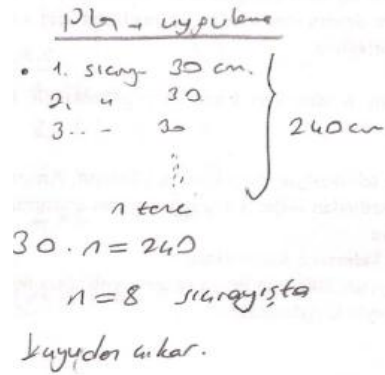 Plan uygulama
• 1. sıçrayış 30 cm.
2. " 30
3. " 30
240 cm
n tane
30 . n = 240
n = 8 sıçrayışta
kuyudan çıkar.